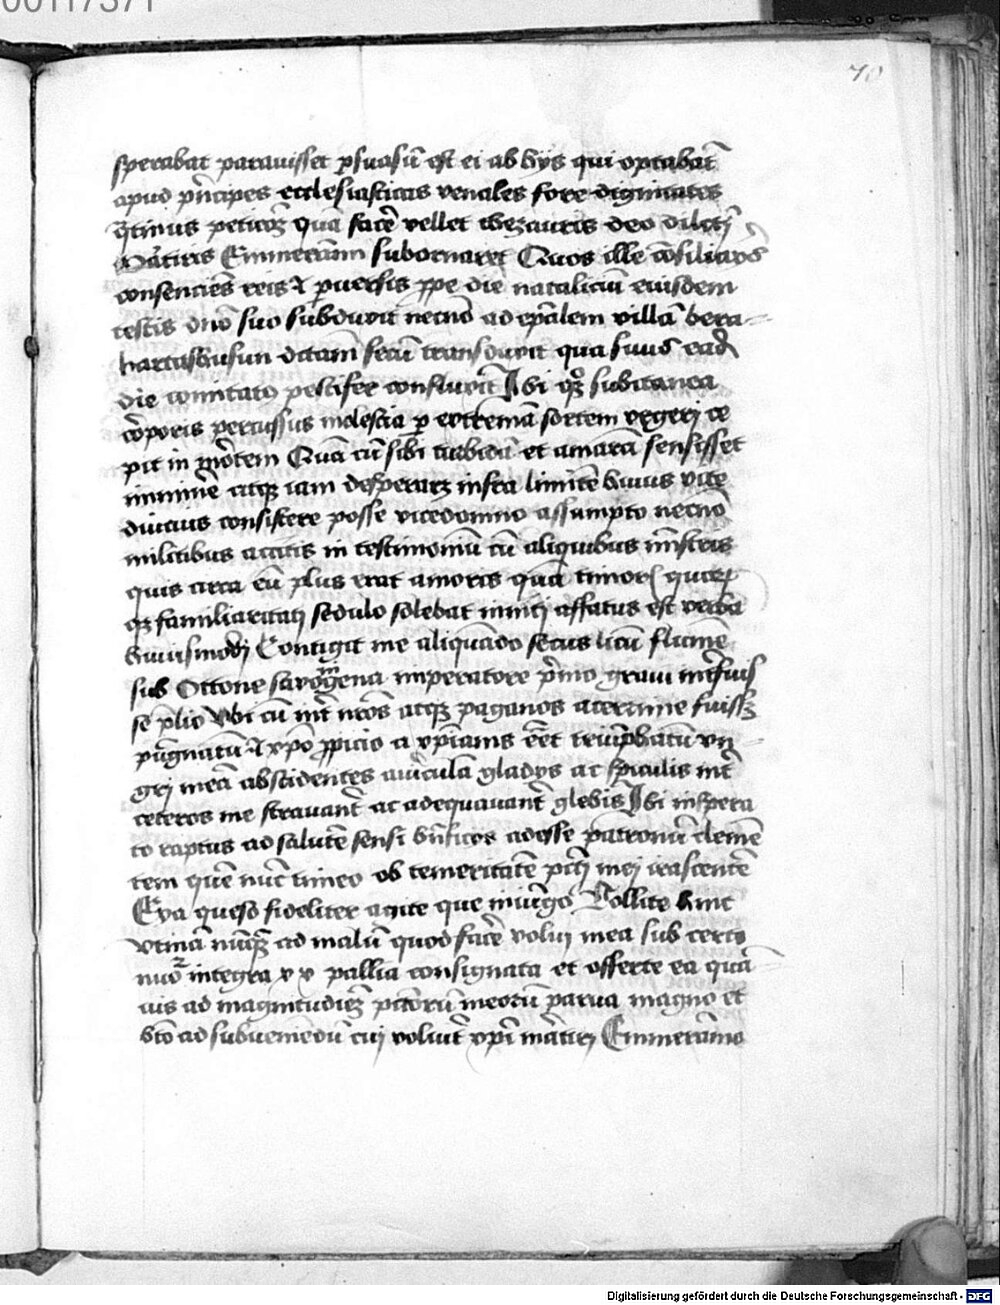 00117371
70
sperabat parauisset psuasū est ei ab hijs qui optabāt
apud pncipes ecclesiasticas venales fore dignitates
qtinus peticoz quā facē vellet thezauris deo dilecti
Martiris Emmeramm subornaret Quos ille
consencies reis pueris ppe die natalicium eiusdem
testis dnō suo subduxit necnō ad epālem villā bera
hartashusun dictam secū transduxit qua suus ead
die comitatus pestifer confluxit Ibi qz subitanea
cōporis percussus molestia p extremā sortem vrgeri ce
pit in mortem Quā cū sibi turbidā et amarā sensisset
imminē atqz iam desperaret infra limitē huius vite
diucius consistere posse vicedomno assumpto necnō
militibus accitis in testimoniū cū aliquibus mīstris
quis circa eū plus erat amoris quā timoris
qz familiaritati sedulo solebat inniti affatus est verba
huiusmodi Contigit me aliquādo secus licū flumē
sub Ottone imperatore pmo graui
se plio Vbi cū int nros atqz paganos acerrime fuissz
pugnatū xpo ppicio a xpianis eēt triūphatū vn
gri meā abscidentes auriculā gladijs ac spiculis int
ceteros me strauant ac adequauant glebis Ibi inspera
to raptus ad salutē sensi adesse patronū clemē
tem quē nūc timeo ob temeritatē pcti mei irascentē
Eya queso fideliter agite que iniūgo Tollite hinc
vtinā nūqz ad malū quod facē volui mea sub certo
nuō integra x x pallia consignata et offerte ea quā
uis ad magnitudiez pctorū meorū parua magno et
scō ad subueniēdū cui voluit xpi martiri Emmerāmo
Digitalisierung gefördert durch die Deutsche Forschungsgemeinschaft - DFG